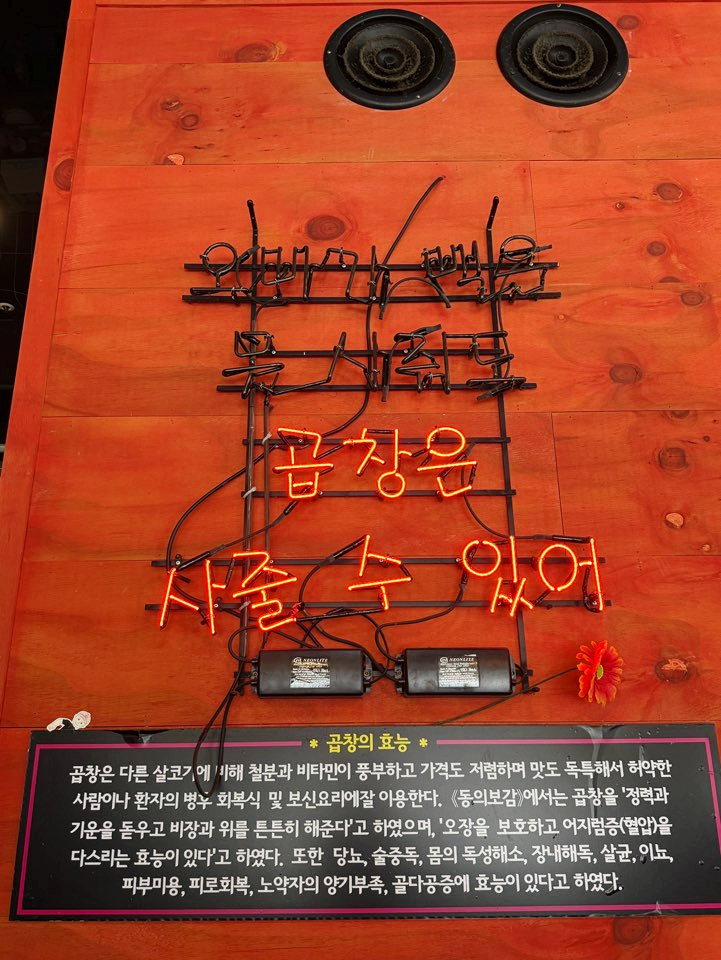 오빠가 빽은
못 사줘도
곱창은
사줄 수 있어
NEONLITE
NEONLITE
* 곱창의 효능 *
곱창은 다른 살코기에 비해 철분과 비타민이 풍부하고 가격도 저렴하며 맛도 독특해서 허약한
사람이나 환자의 병후 회복식 및 보신요리에잘 이용한다. 《동의보감》에서는 곱창을 '정력과
기운을 돋우고 비장과 위를 튼튼히 해준다'고 하였으며, '오장을 보호하고 어지럼증(혈압)을
다스리는 효능이 있다'고 하였다. 또한 당뇨, 술중독, 몸의 독성해소, 장내해독, 살균, 이뇨,
피부미용, 피로회복, 노약자의 양기부족, 골다공증에 효능이 있다고 하였다.